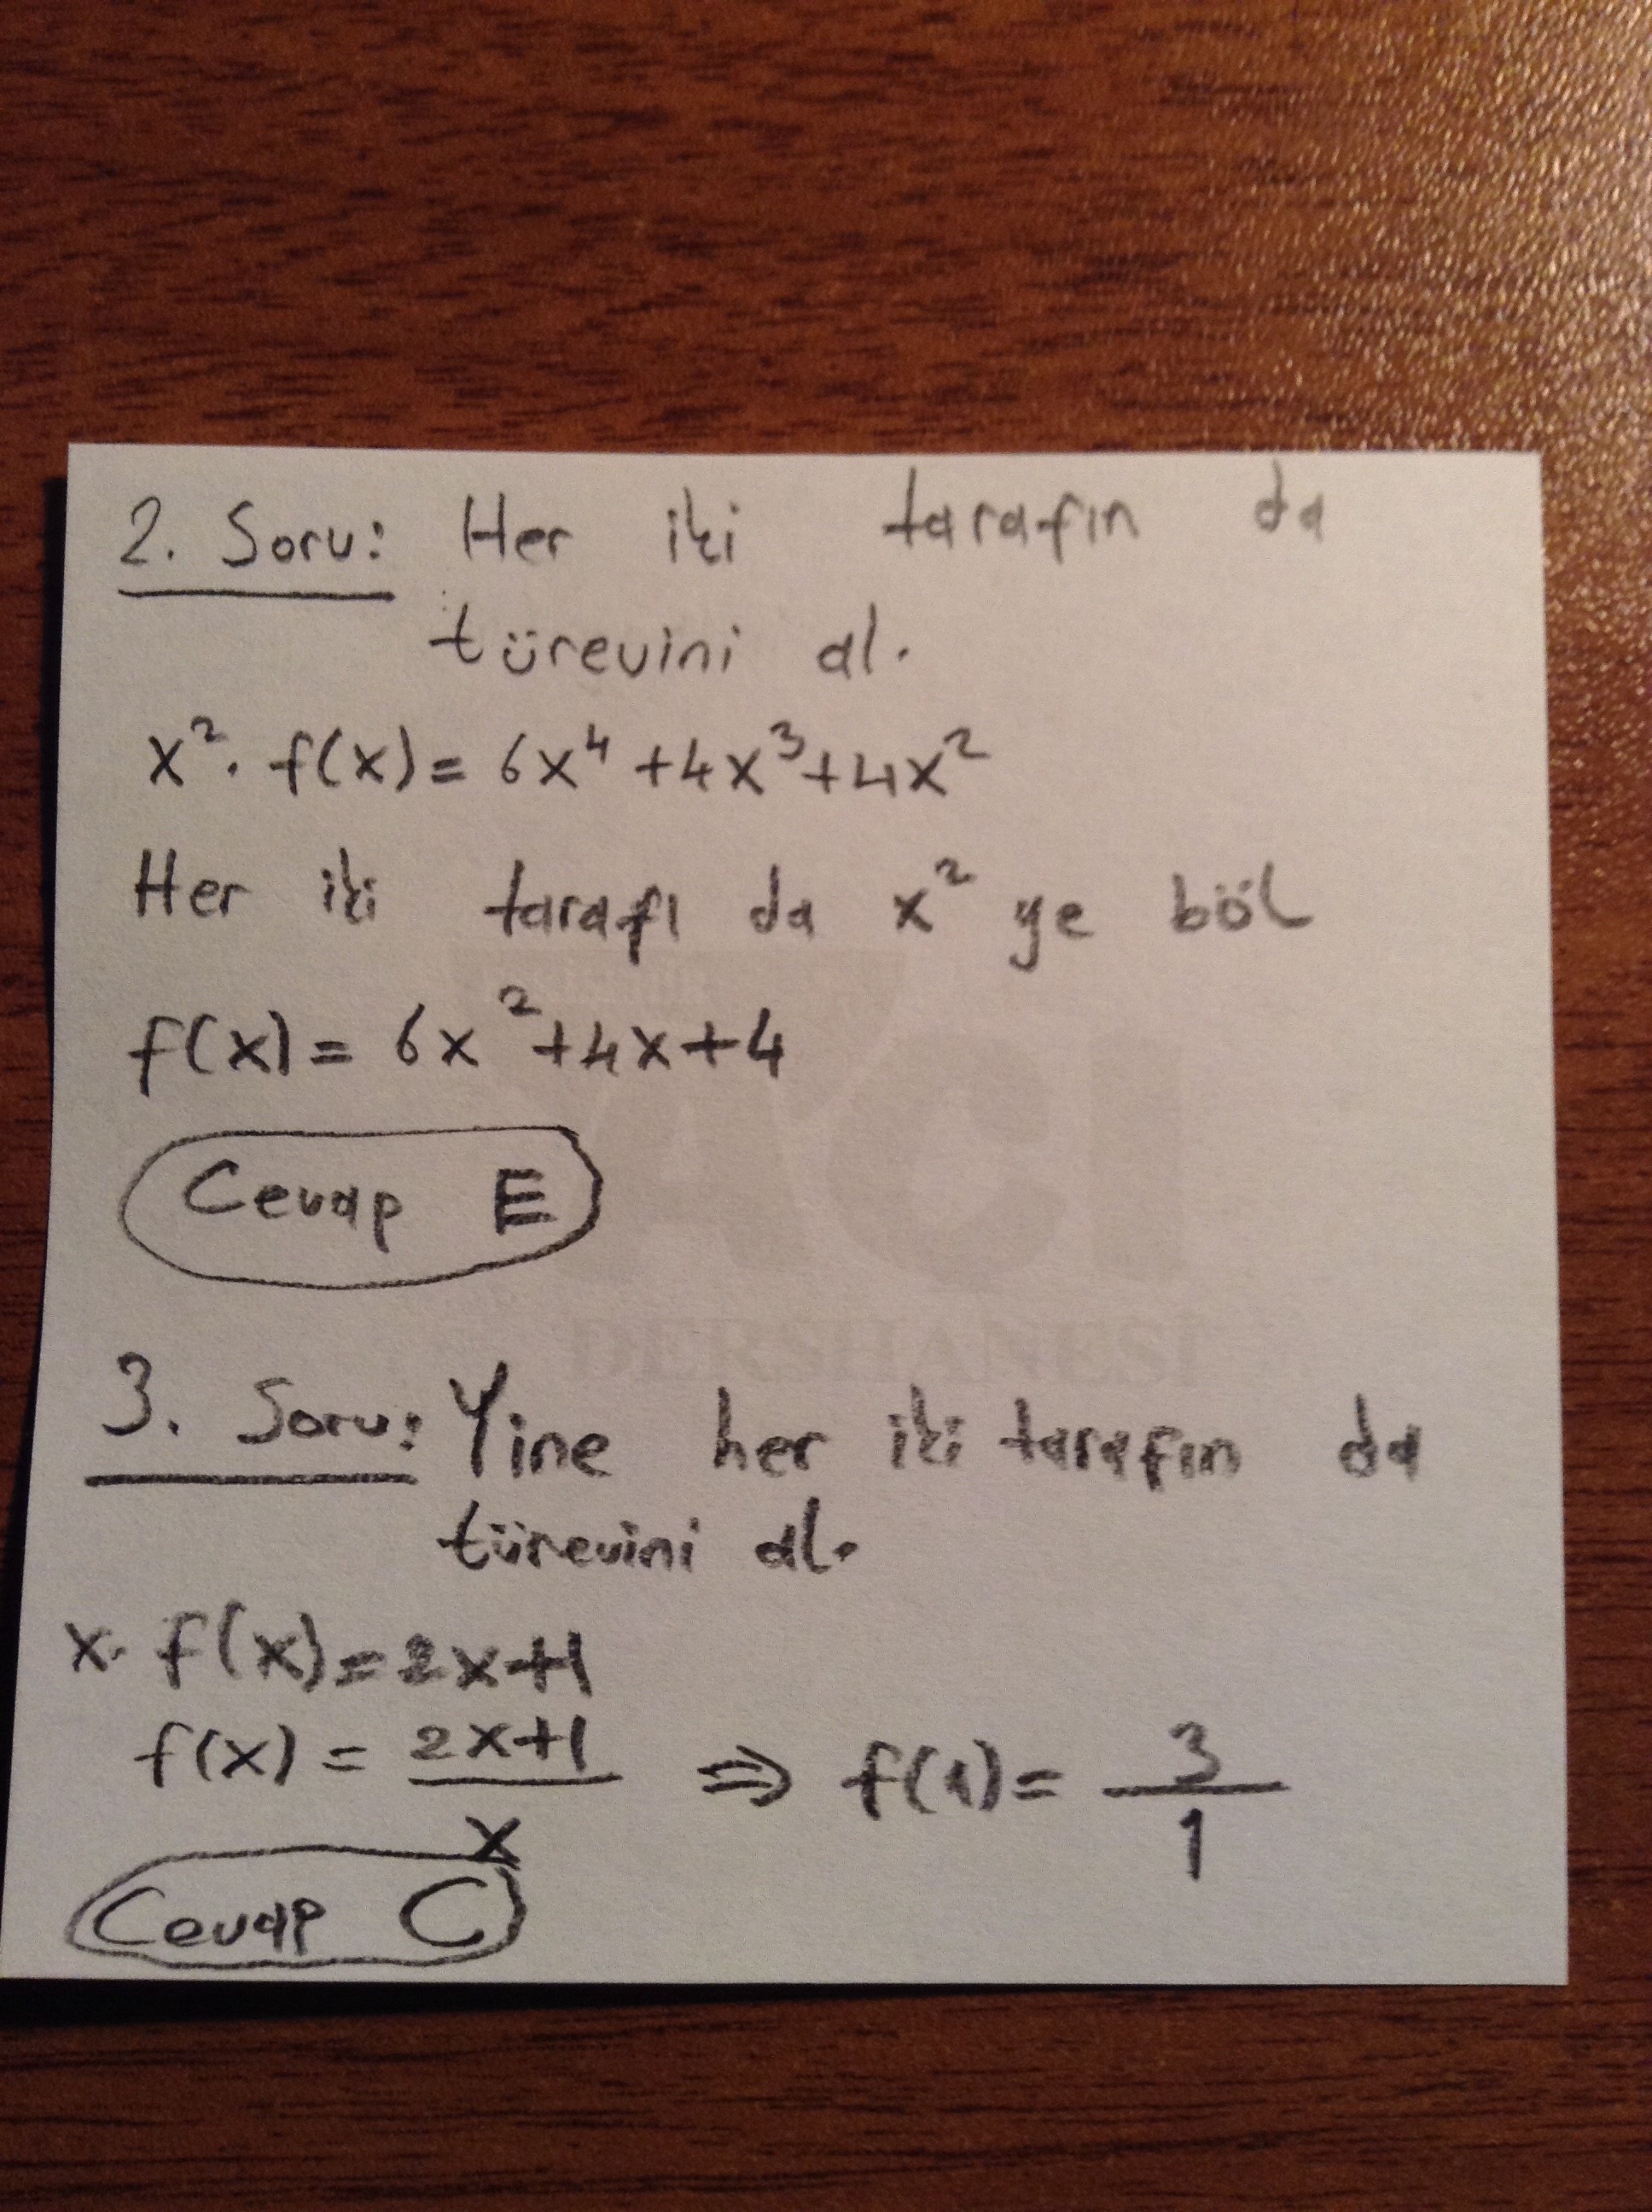 2. Soru: Her iki tarafın da
türevini al.
x². f(x) = 6x⁴ + 4x³ + 4x²
Her iki tarafı da x² ye böl
f(x) = 6x² + 4x + 4
Cevap E
ACI
DERSHANESİ
3. Soru: Yine her iki tarafın da
türevini al.
x. f(x) = 2x+1
f(x) = 2x+1 / x ⇒ f(1) = 3 / 1
Cevap C